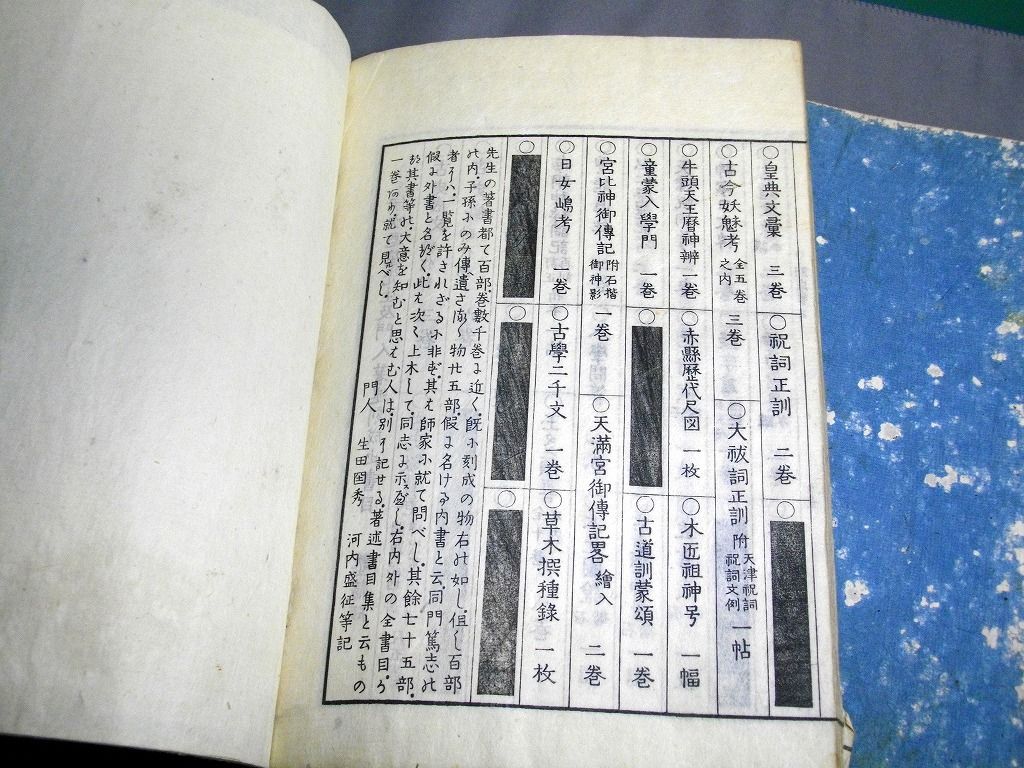 ○皇典文彙 三巻 ○祝詞正訓 二巻 ○
○古今妖魅考 全五巻之内 三巻 ○大祓詞正訓 附天津祝詞祝詞文例 一帖
○牛頭天王暦神辨 一巻 ○赤縣歴代尺図 一枚 ○木匠祖神号 一幅
○童蒙入學門 一巻 ○ ○古道訓蒙頌 一巻
○宮比神御傳記 附石揩御神影 一巻 ○天満宮御傳記畧 繪入 二巻
○日女嶋考 一巻 ○古學二千文 一巻 ○草木撰種錄 一枚
○ ○ ○
先生の著書都て百部巻數千巻に近く、既に刻成の物右の如し、但し百部
の内、子孫にのみ傳遺さるべく物廿五部、假に名ける内書と云、同門篤志の
者ハ、一覧を許されざるに非ず、其は師家に就て問べし、其餘七十五部、
假に外書と名づく、此は次々上木して、同志に示すべし、右内外の全書目、
其書等の、大意を知むと思はむ人は、別に記せる、著述書目集と云もの
一巻あり、就て見べし、
門人 生田国秀
河内盛征等記